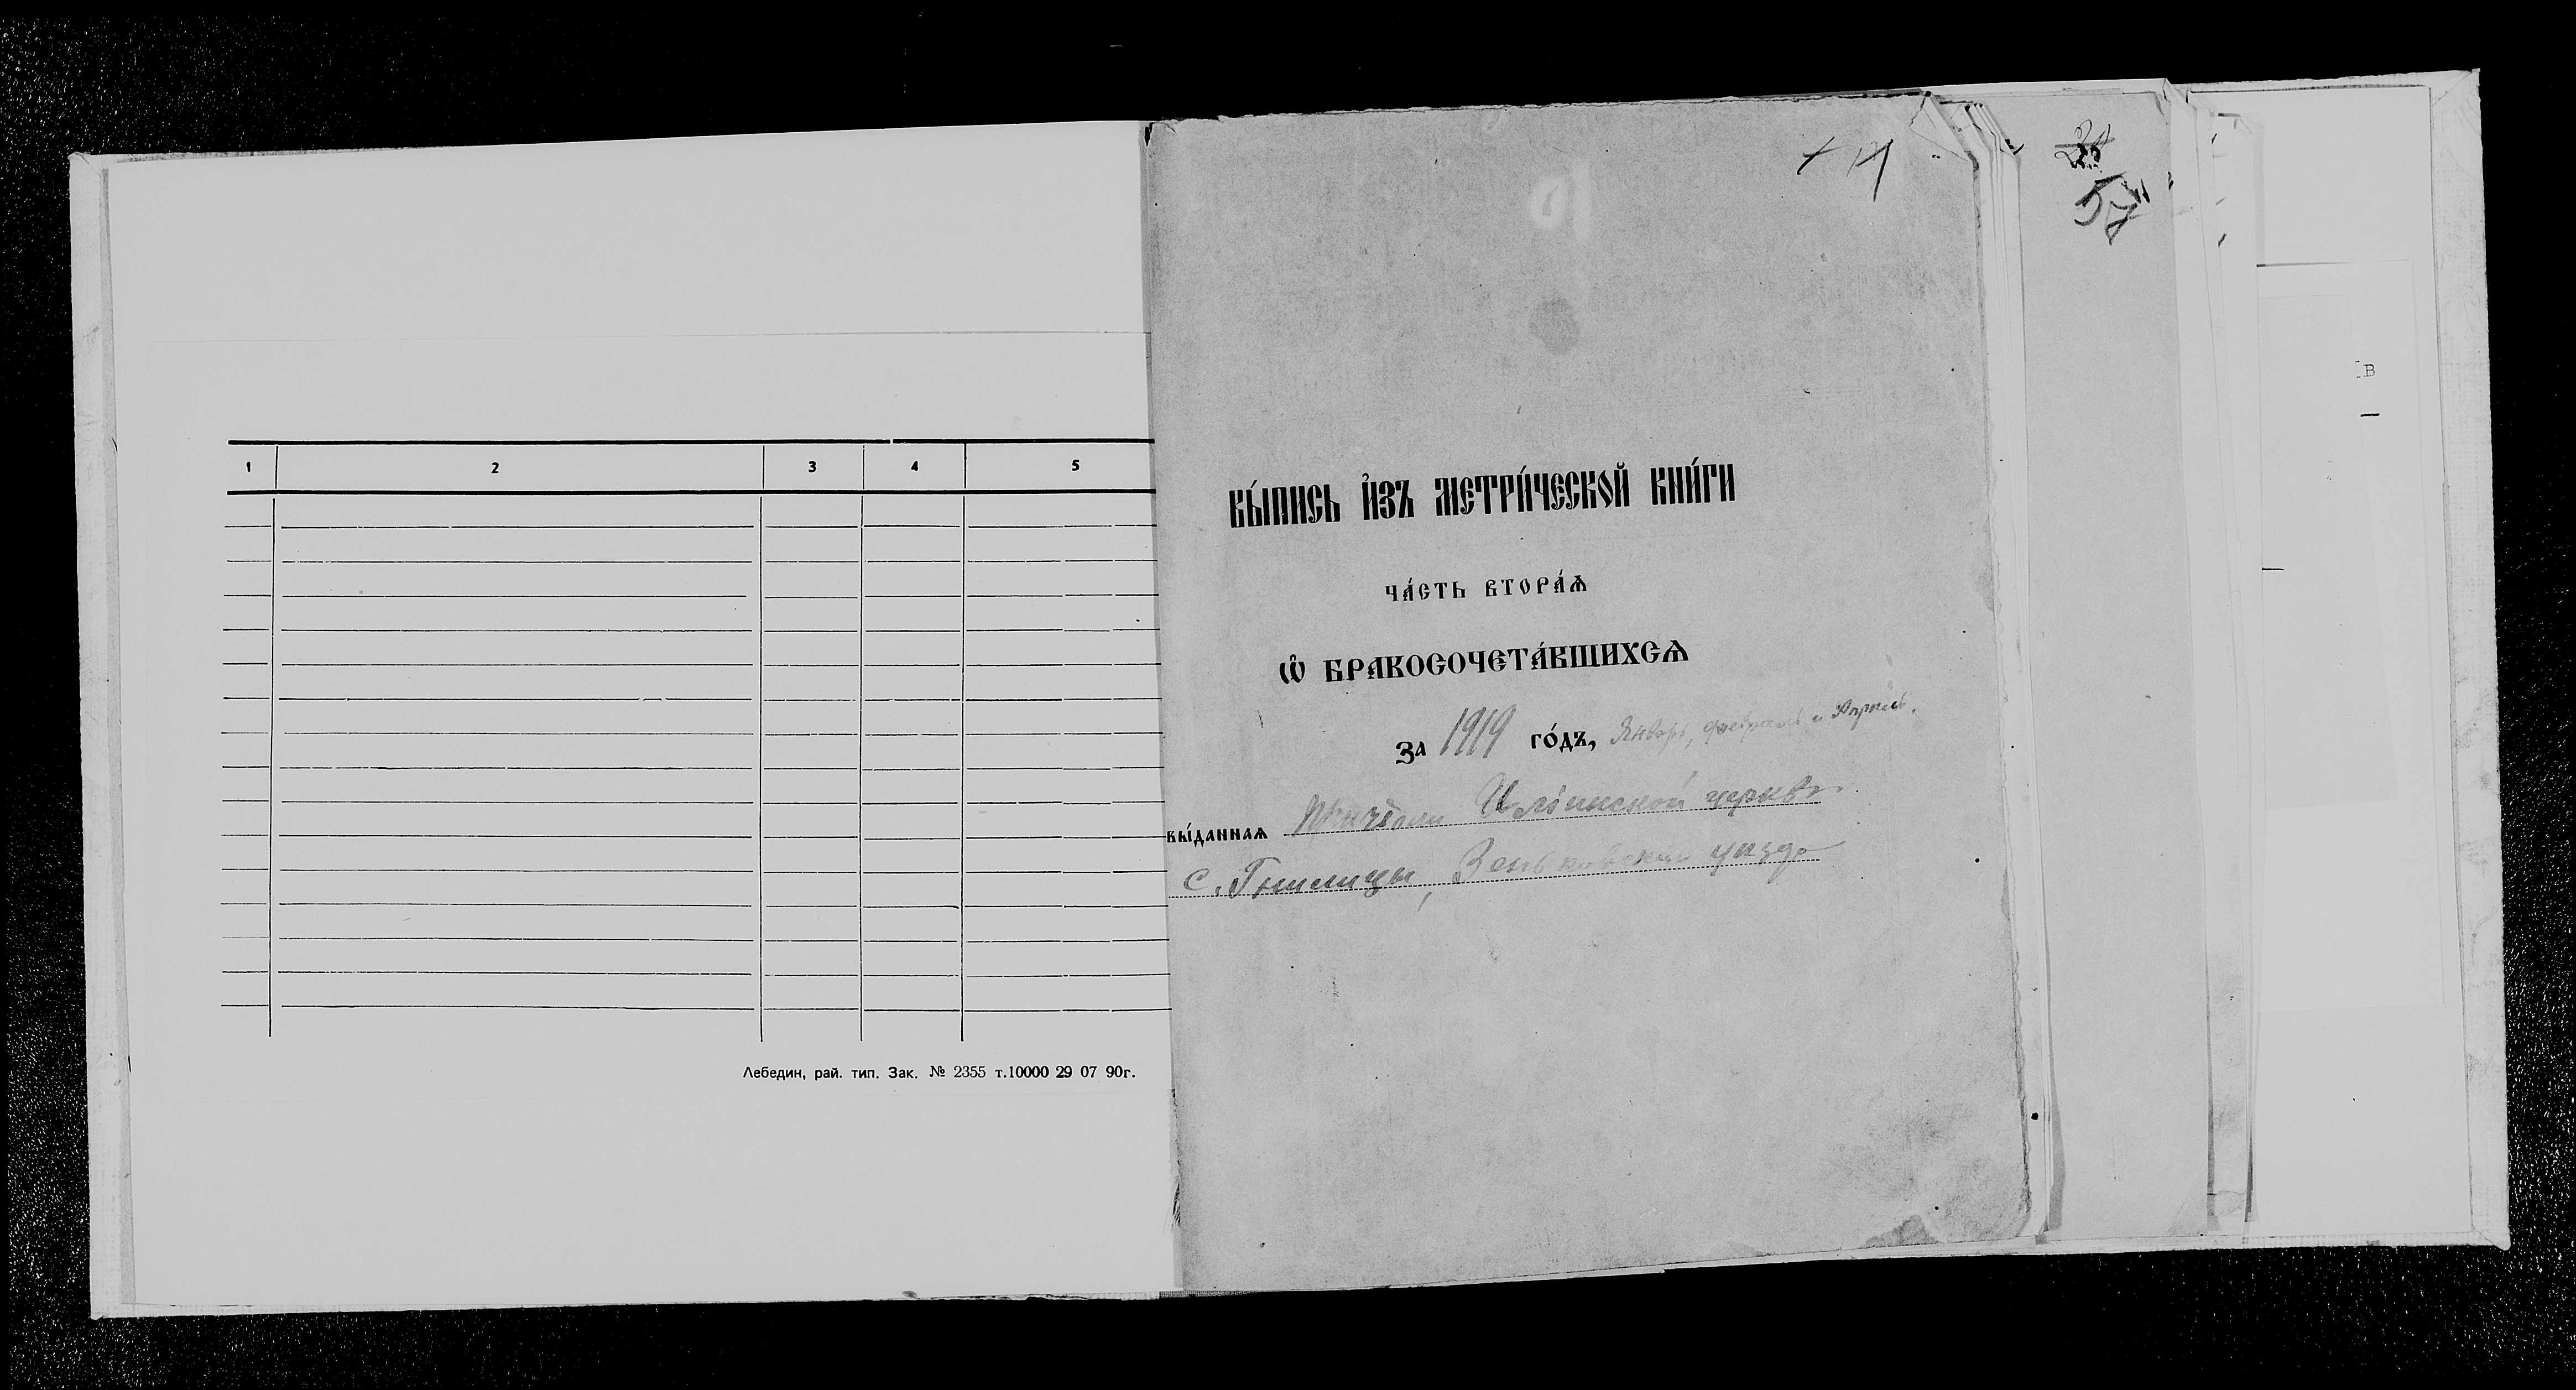 1 2 3 4 5
Лебедин, рай. тип. Зак. № 2355 т.10000 29 07 90г.
вы́пись и҆зъ метри́ческой кни́ги
ча́сть втора́ѧ
Ѡ҆ бракосочета́вшихсѧ
за 1919 го́дъ, Январь, февраль и Апрѣль.
вы́даннаѧ Причтомъ Ильинской церкви
с. , Зеньковскаго уѣзда
В